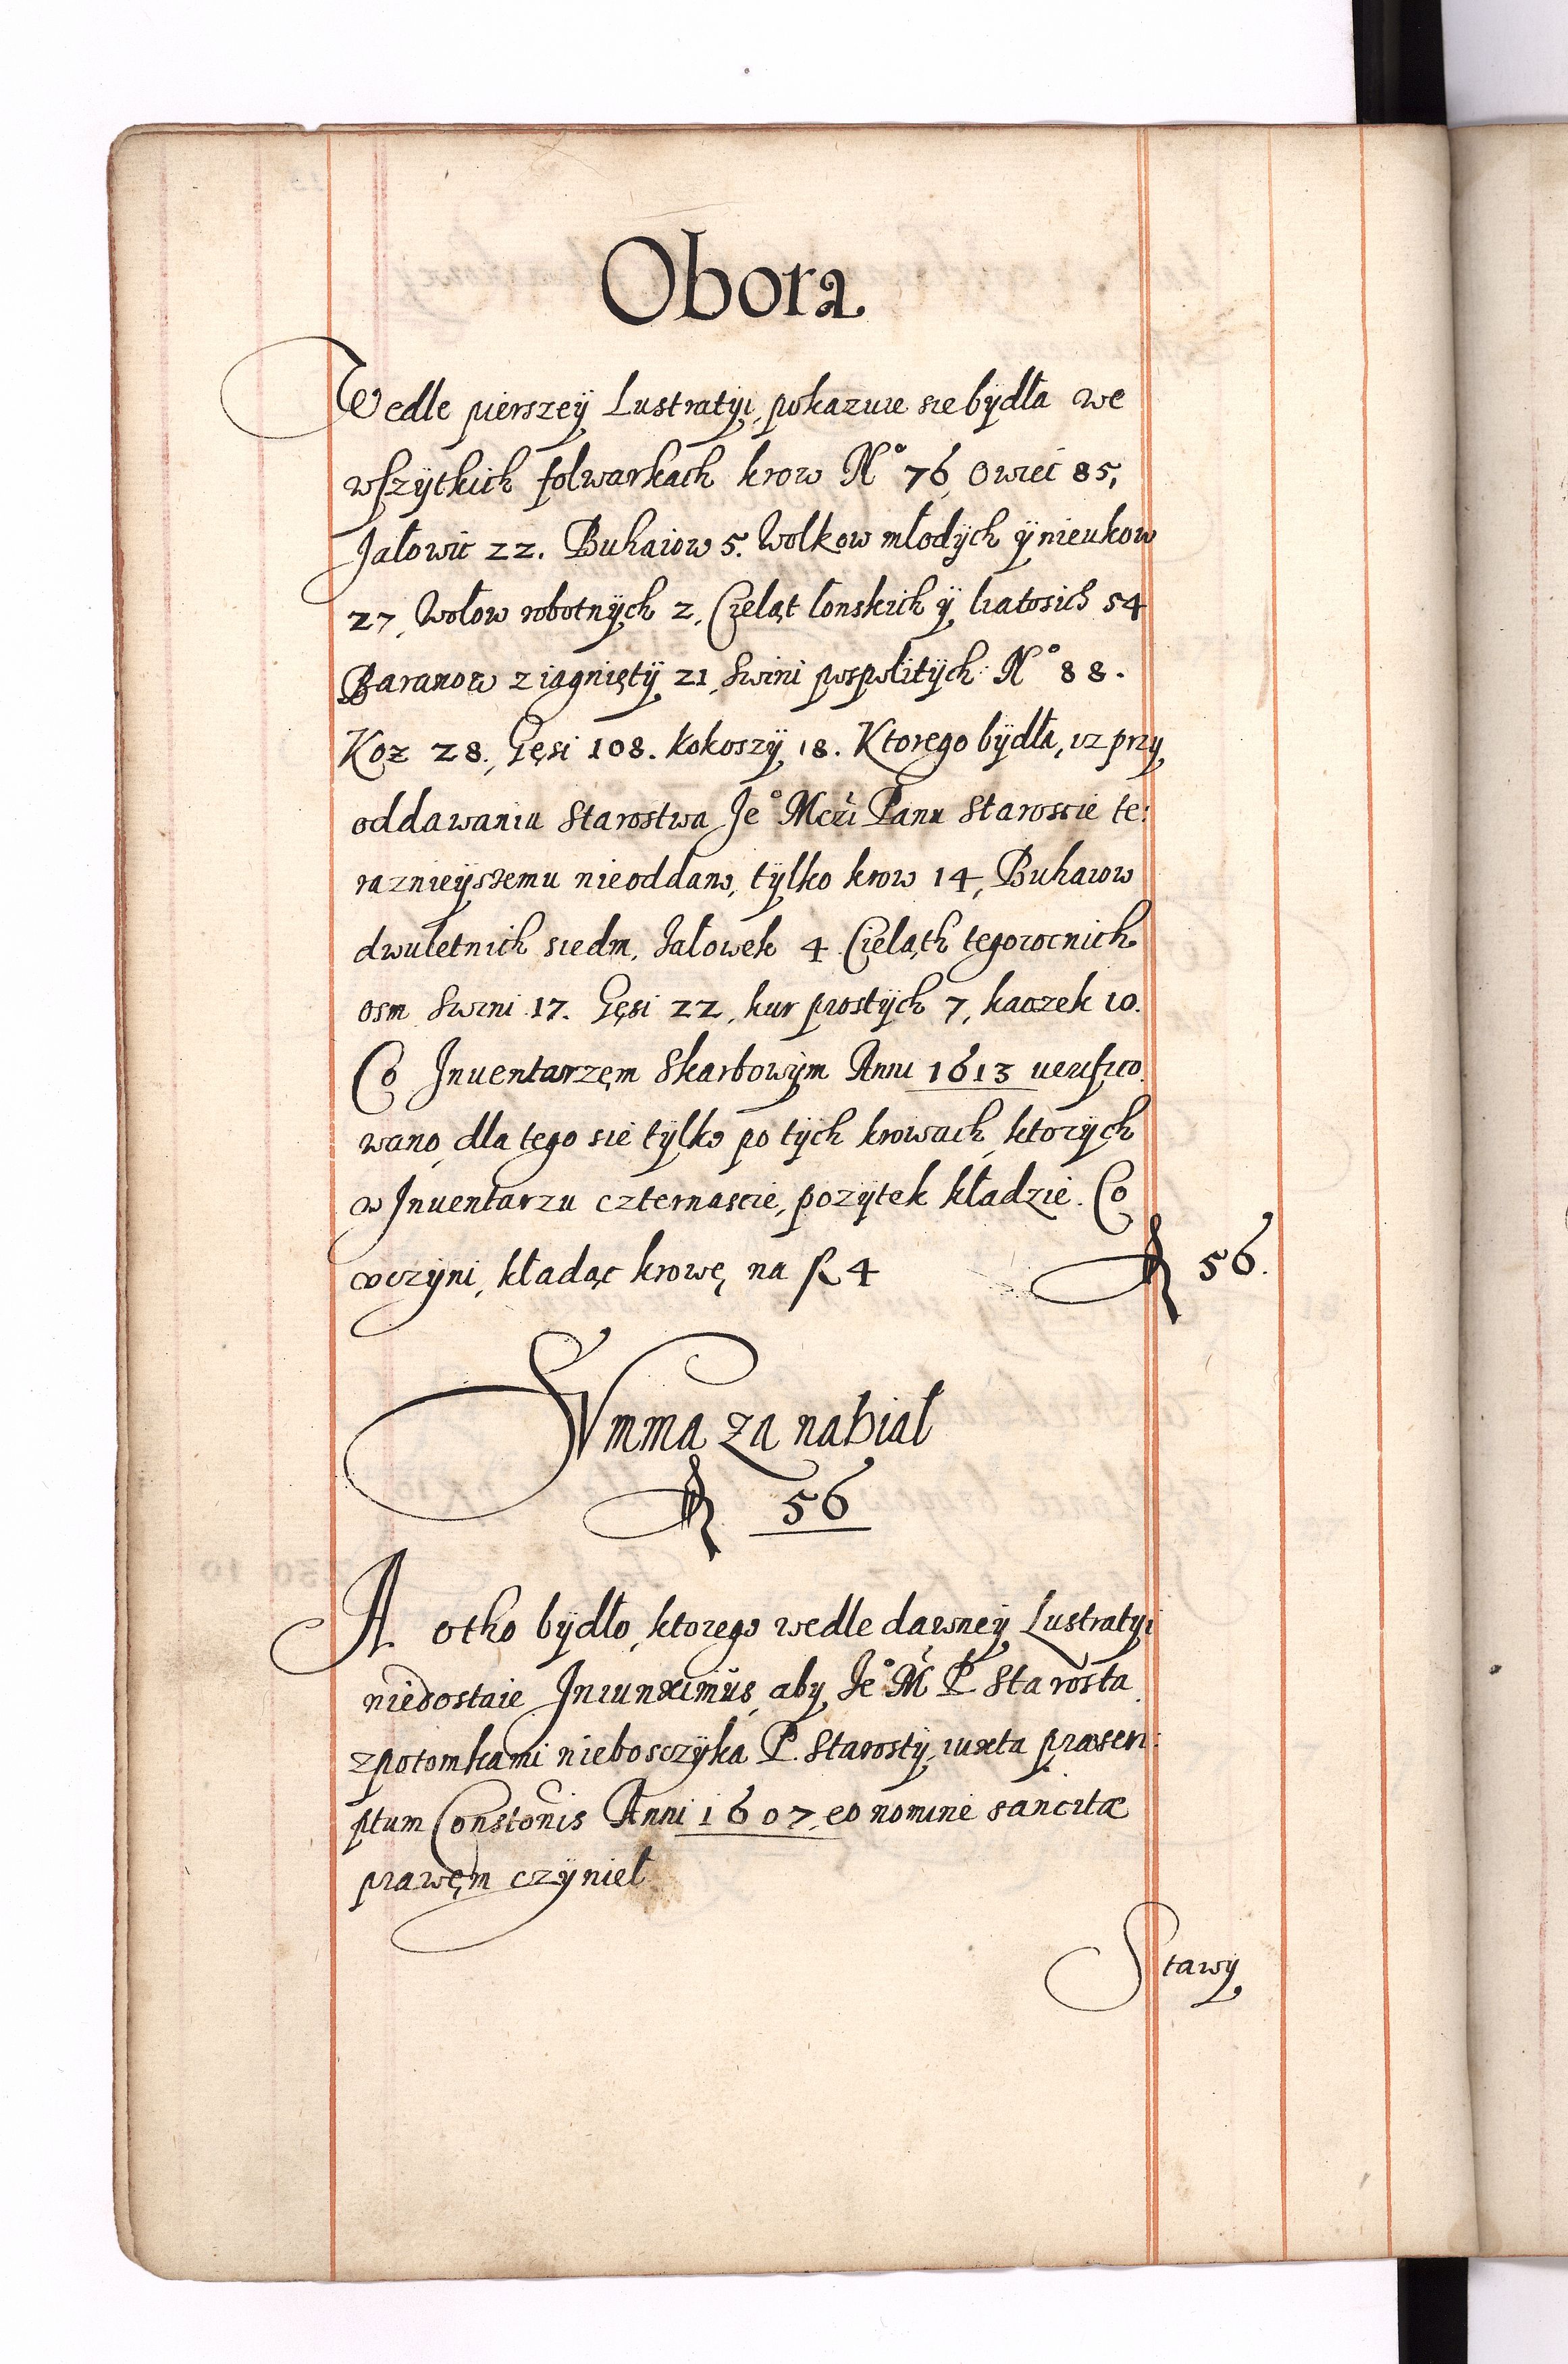 Obora
Wedle pierszeÿ Lustratÿi, pokazuie sie bÿdła we
wszÿtkich folwarkach krow N° 76, Owiec 85,
Jałowic 22. Buhaiow 5. Wolkow młodÿch ÿ nieukow
27, Wołow robotnÿch 2, Cieląt łonskich ÿ liatosich 54
Baranow z iagniętÿ 21, Swini pospolitÿch N° 88.
Koz 28, Gęsi 108. Kokoszÿ 18. Ktorego bÿdła, iz przy
oddawaniu Starostwa Je° Mczi Panu Staroscie te:
raznieÿszemu nie oddano, tÿlko krow 14, Buhaiow
dwuletnich siedm, Jalowek 4 Cieląth tegorocnich
osm Swini 17. Gęsi 22, kur prostÿch 7, kaczek 10.
Co Jnuentarzęm Skarbowÿm Anni 1613 uerifico
wano, dla tego sie tÿlko po tÿch krowach, ktorÿch
w Jnuentarzu czternascie, pozÿtek kładzie. Co
vczÿni, kładąc krowę na fl 4 fl 56.
SVmma za nabiał
fl 56
A otho bÿdło, ktorego wedle dawneÿ Lustratÿi
niedostaie Jniunximus, aby Je° M P Starosta
z potomkami nieboszczÿka P. Starostÿ, iuxta præscri:
ptum Constonis Anni 1607, eo nomine sancitæ
prawęm czÿniel
Stawy